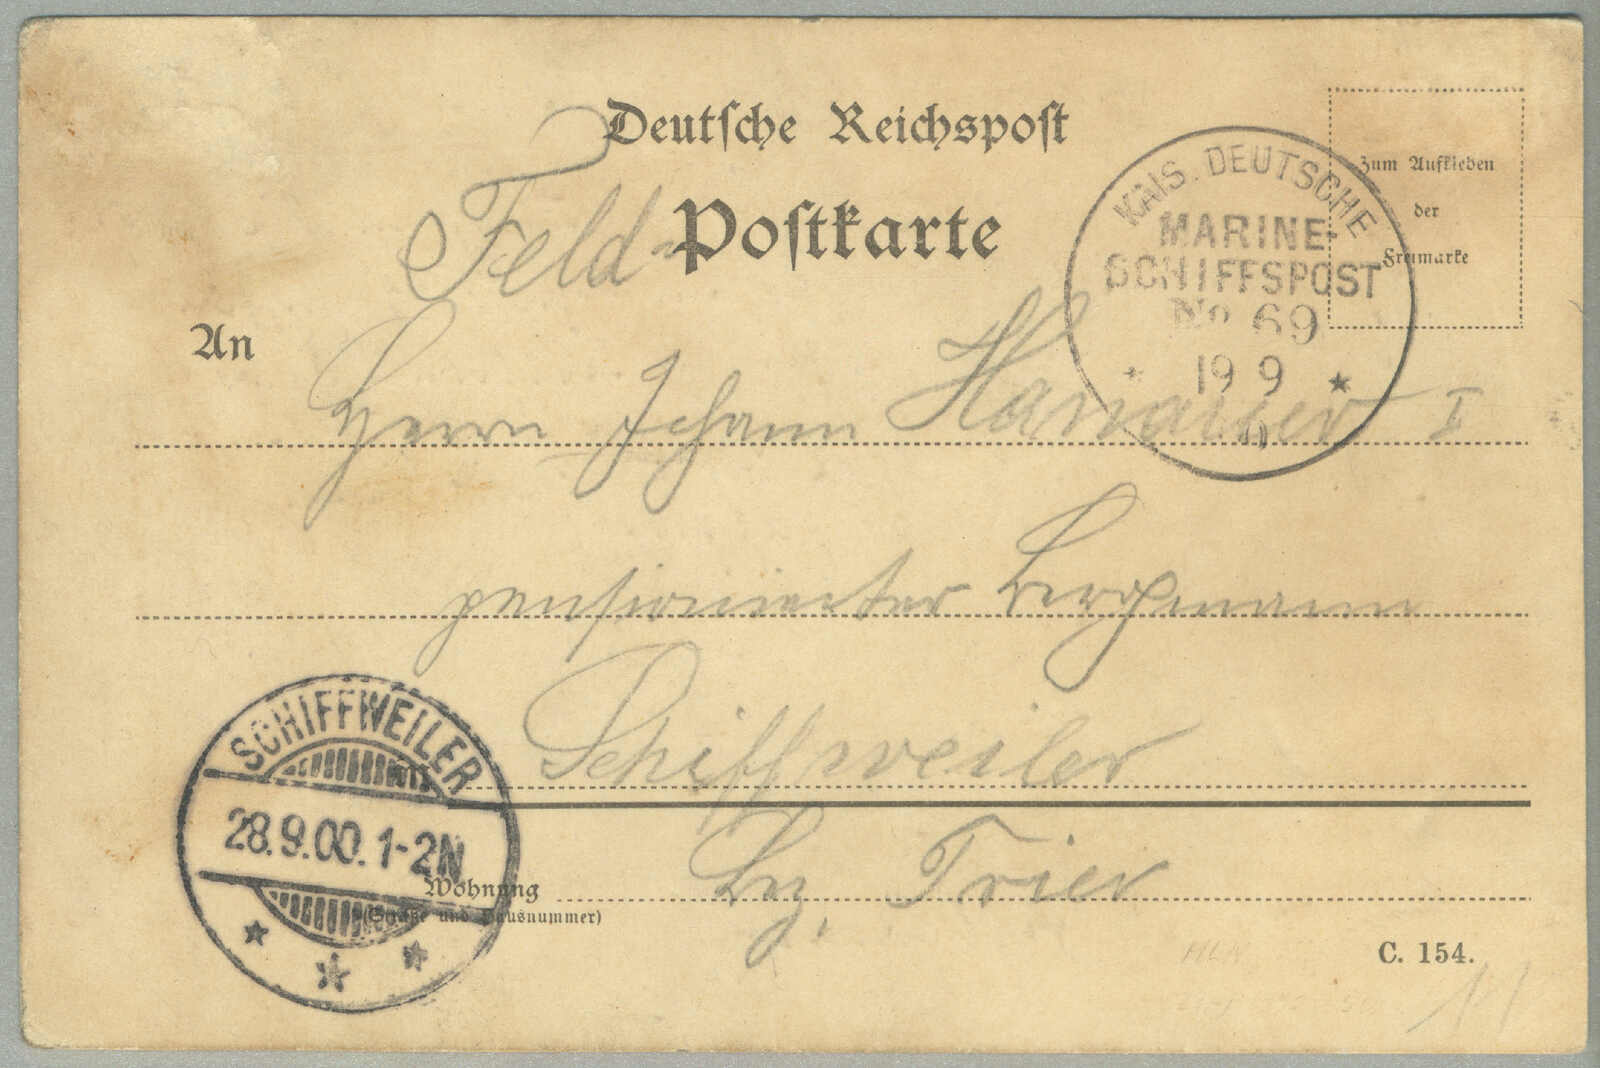 Deutsche Reichspost
Feld- Postkarte
KAIS. DEUTSCHE
MARINE-
SCHIFFSPOST
No 69
19 9
Zum Aufkleben
der
Freimarke
An
Herrn Johann I
pensionierter Bergmann
Schiffweiler
SCHIFFWEILER
28.9.00. 1-2N
in
Bz. Trier
Wohnung
(Straße und Hausnummer)
C. 154.